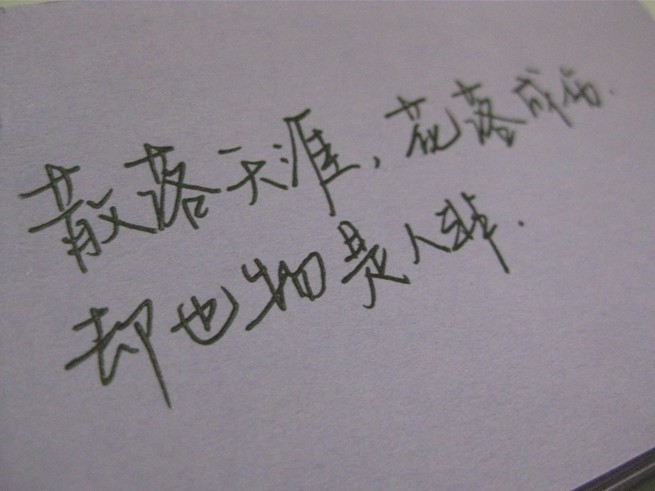 散落天涯，花落成伤.
却也物是人非.